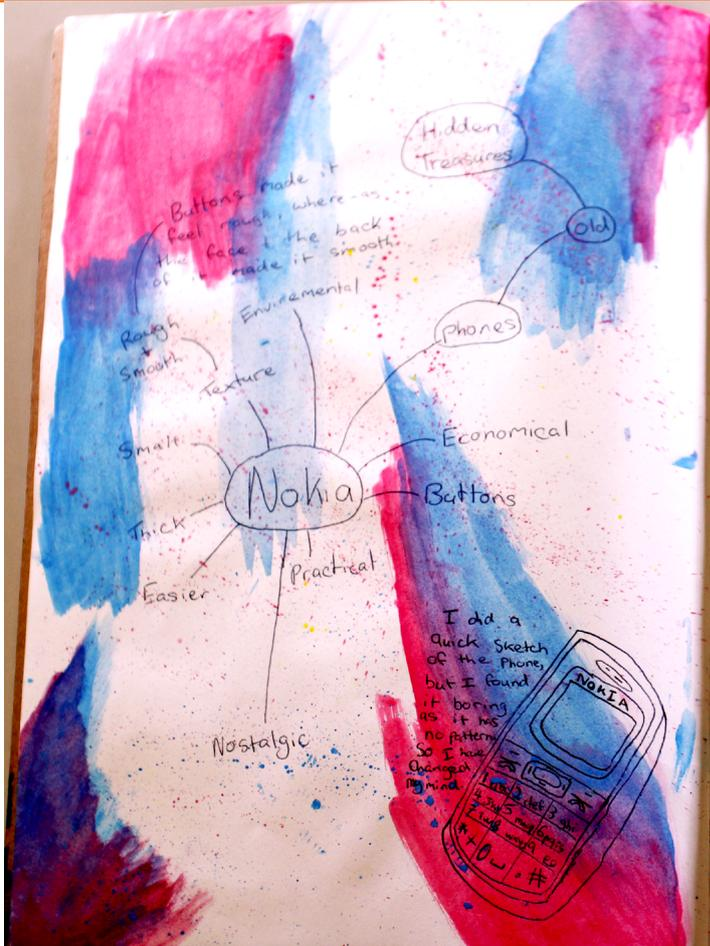 Hidden
Treasures
old
Phones
Buttons made it
feel rough, where-as
the face & the back
of it made it smooth.
Enviremental
Rough
+
Smooth
Texture
Small
Thick
Easier
Nokia
Economical
Buttons
Practical
Nostalgic
I did a
quick sketch
of the Phone,
but I found
it boring
as it has
no pattern
So I have
changed
my mind.
NOKIA